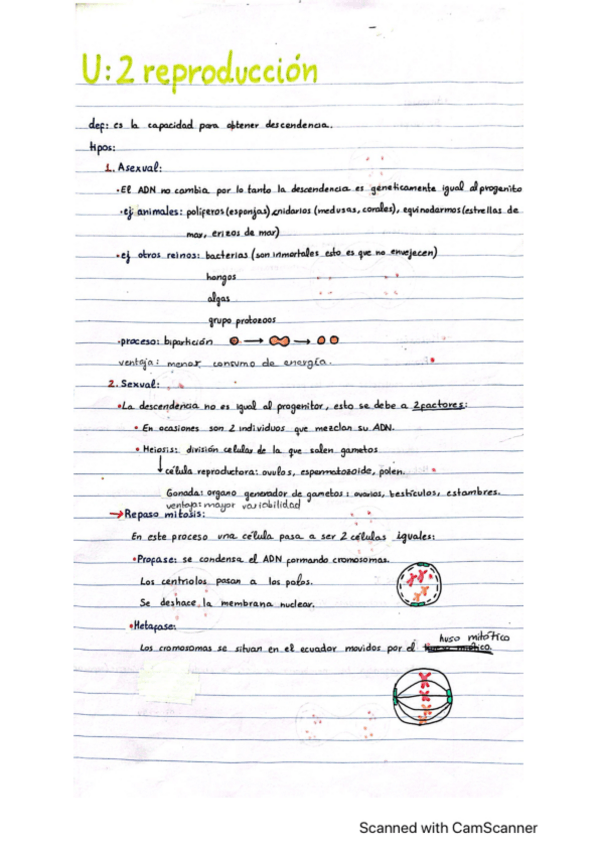 U: 2 reproducción
def: es la capacidad para obtener descendencia.
tipos:
1. Asexual:
•El ADN no cambia por lo tanto la descendencia es géneticamente igual al progenito
•ej animales: políferos (esponjas), cnidarios (medusas, corales), equinodarmos (estrellas de
mar, erizos de mar)
•ej otros reinos: bacterias (son inmortales esto es que no envejecen)
hongos
algas
grupo protozoos
•proceso: bipartición
ventaja: menor consumo de energía.
2. Sexual:
•La descendencia no es igual al progenitor, esto se debe a 2 factores:
• En ocasiones son 2 individuos que mezclan su ADN.
• Meiosis: división celular de la que salen gametos
célula reproductora: ovulos, espermatozoide, polen.
Gonada: organo generador de gametos: ovarios, testículos, estambres.
ventaja: mayor variabilidad
→ Repaso mitosis:
En este proceso una célula pasa a ser 2 células iguales:
•Profase: se condensa el ADN formando cromosomas.
Los centriolos pasan a los polos.
Se deshace la membrana nuclear.
•Metafase:
huso mitótico
Los cromosomas se situan en el ecuador movidos por el
Scanned with CamScanner